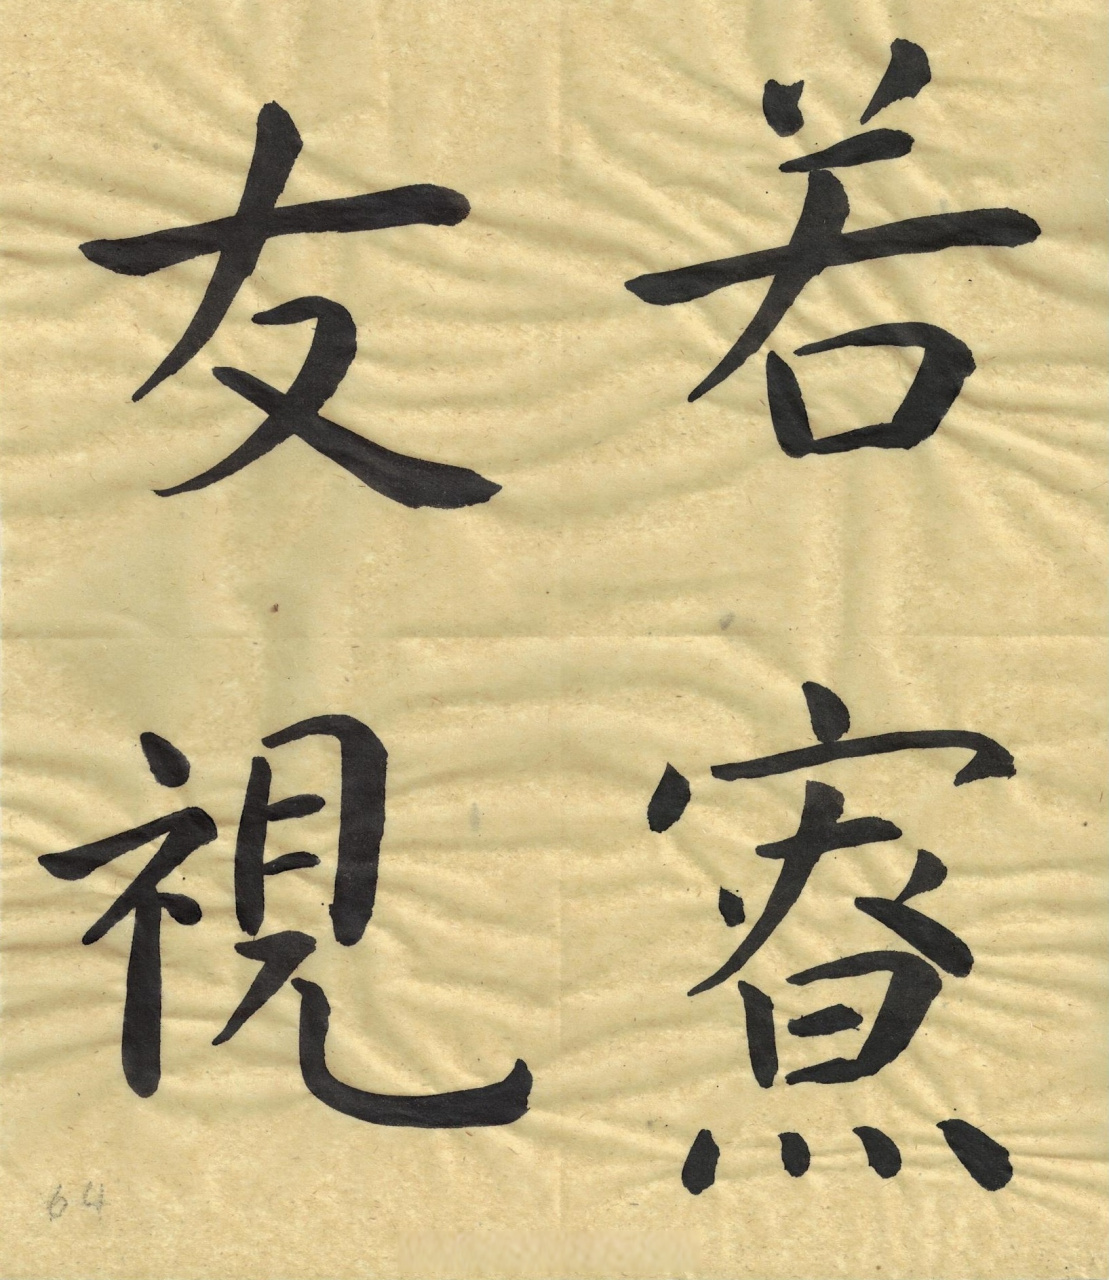 若寮
友視
64